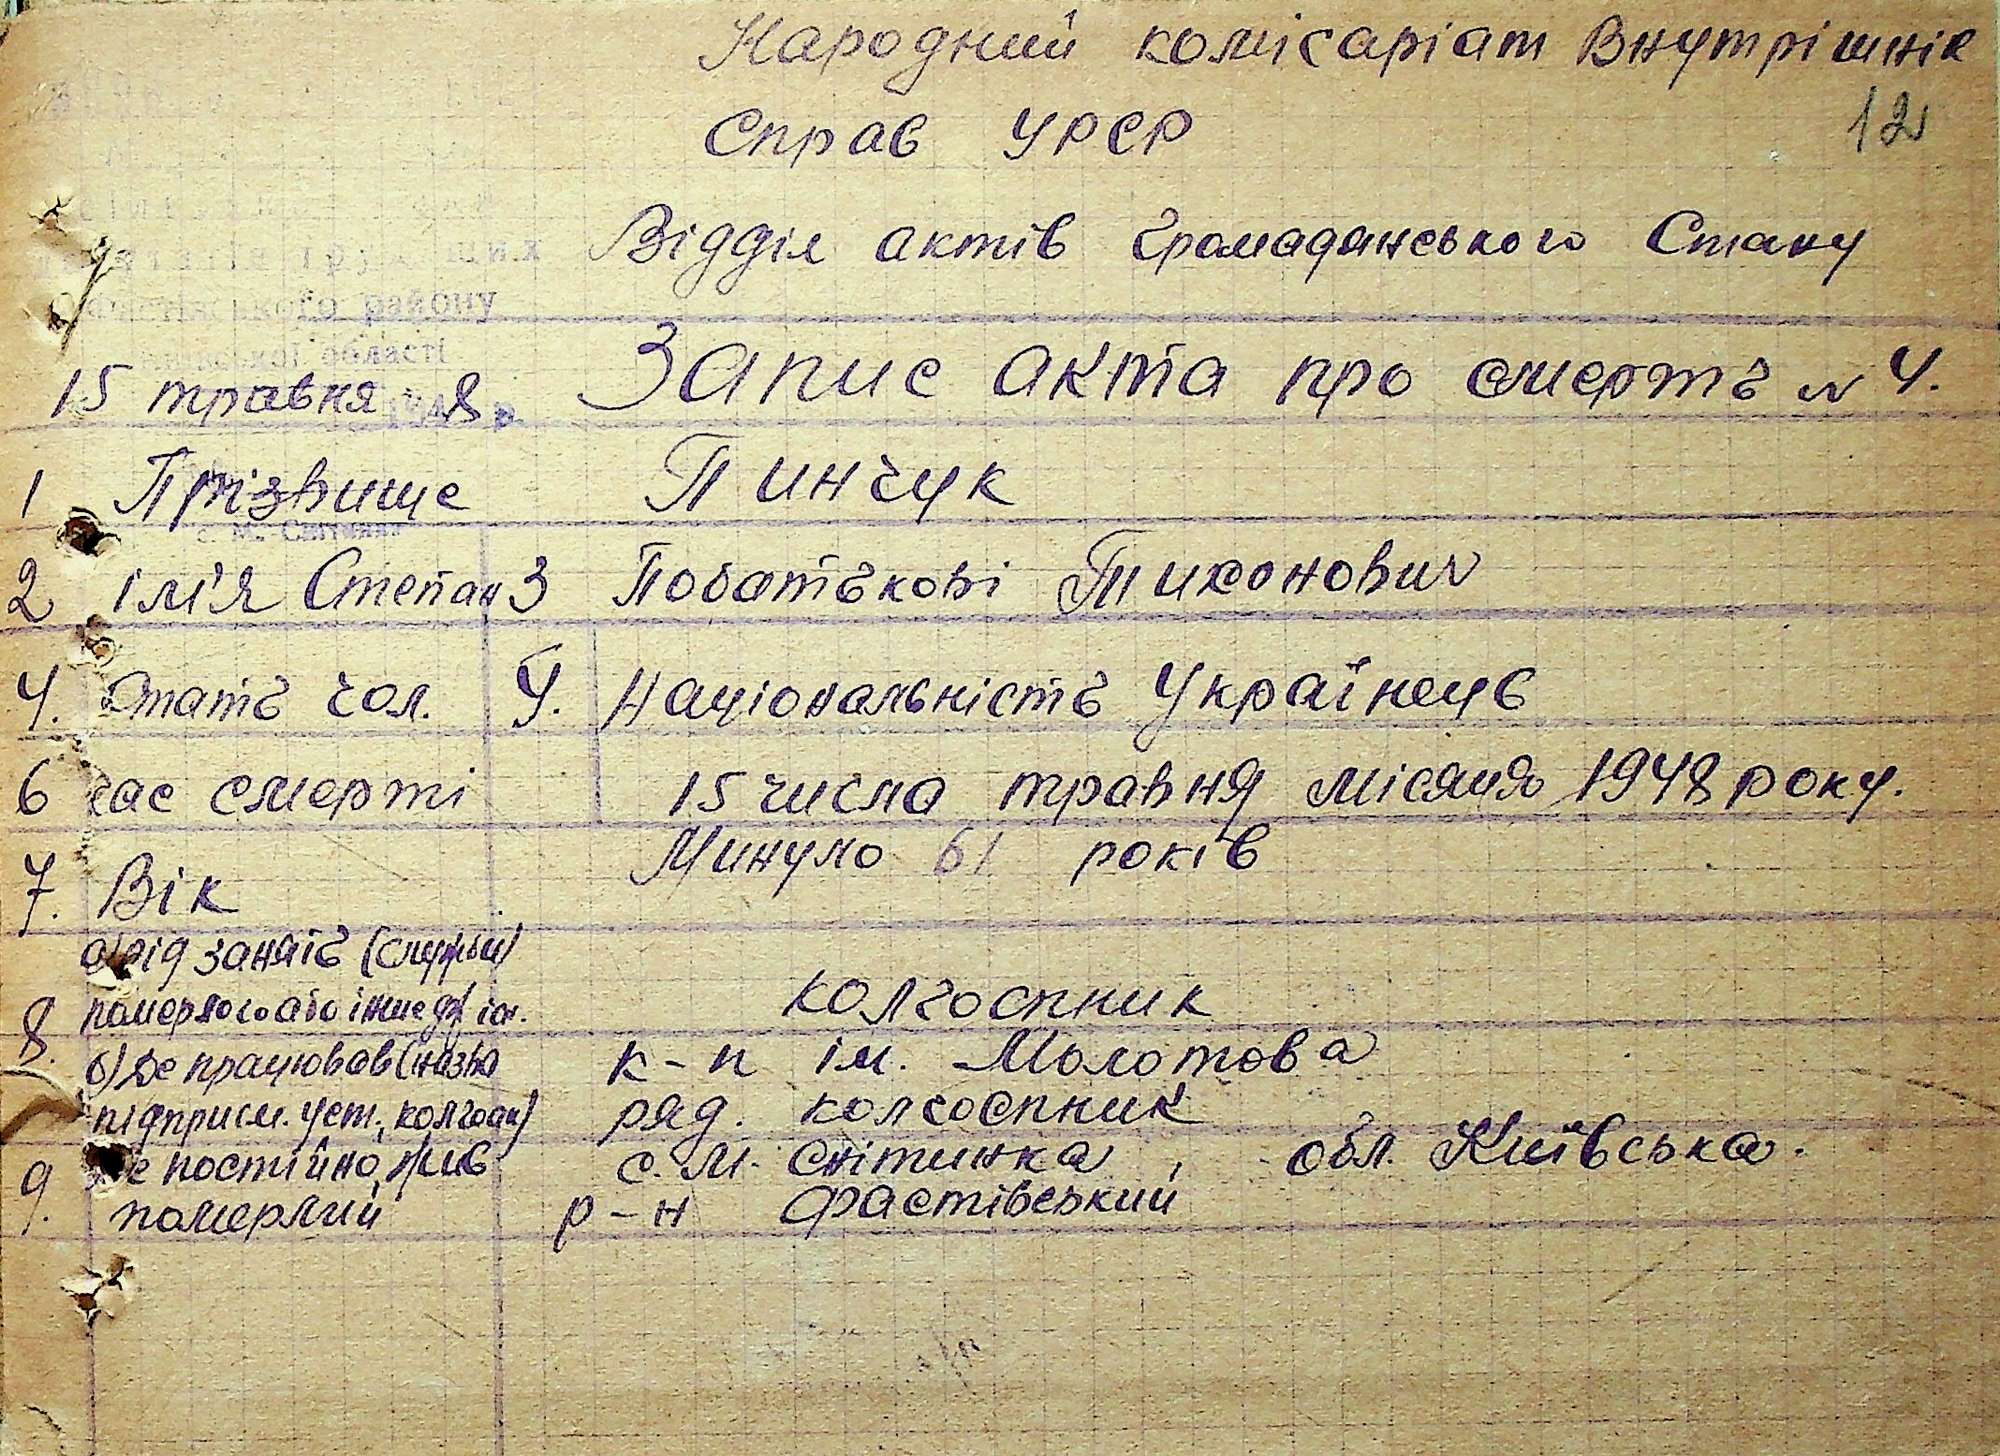 Народний комісаріат Внутрішніх
12
Справ УРСР
Відділ актів Громадянського Стану
району
області
15 травня 1948 р. Запис акта про смерть № 4.
1 Прізвище Пинчук
с. М. Снітинка
2 ім'я Степан 3 Побатькові Тихонович
4. Стать чол. 5. Національність Українець
6 час смерті 15 числа травня місяця 1948 року.
7. Вік Минуло 61 років
а) рід занять (служби)
8. померлого або інше колгоспник
б) Де працював (назва к-п ім. Молотова
підприєм. уст., колгосп) ряд. колгоспник
9. Де постійно жив с. М. Снітинка, обл. Київська.
померлий р-н Фастівський